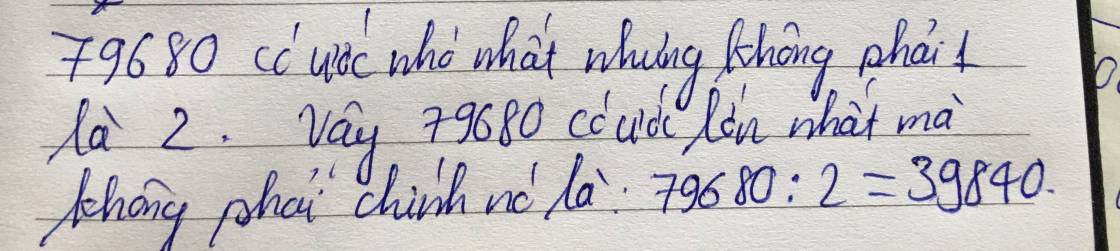 79680 có ước nhỏ nhất nhưng không phải 1
là 2. Vây 79680 có ước lớn nhất mà
không phải chính nó là: 79680 : 2 = 39840.